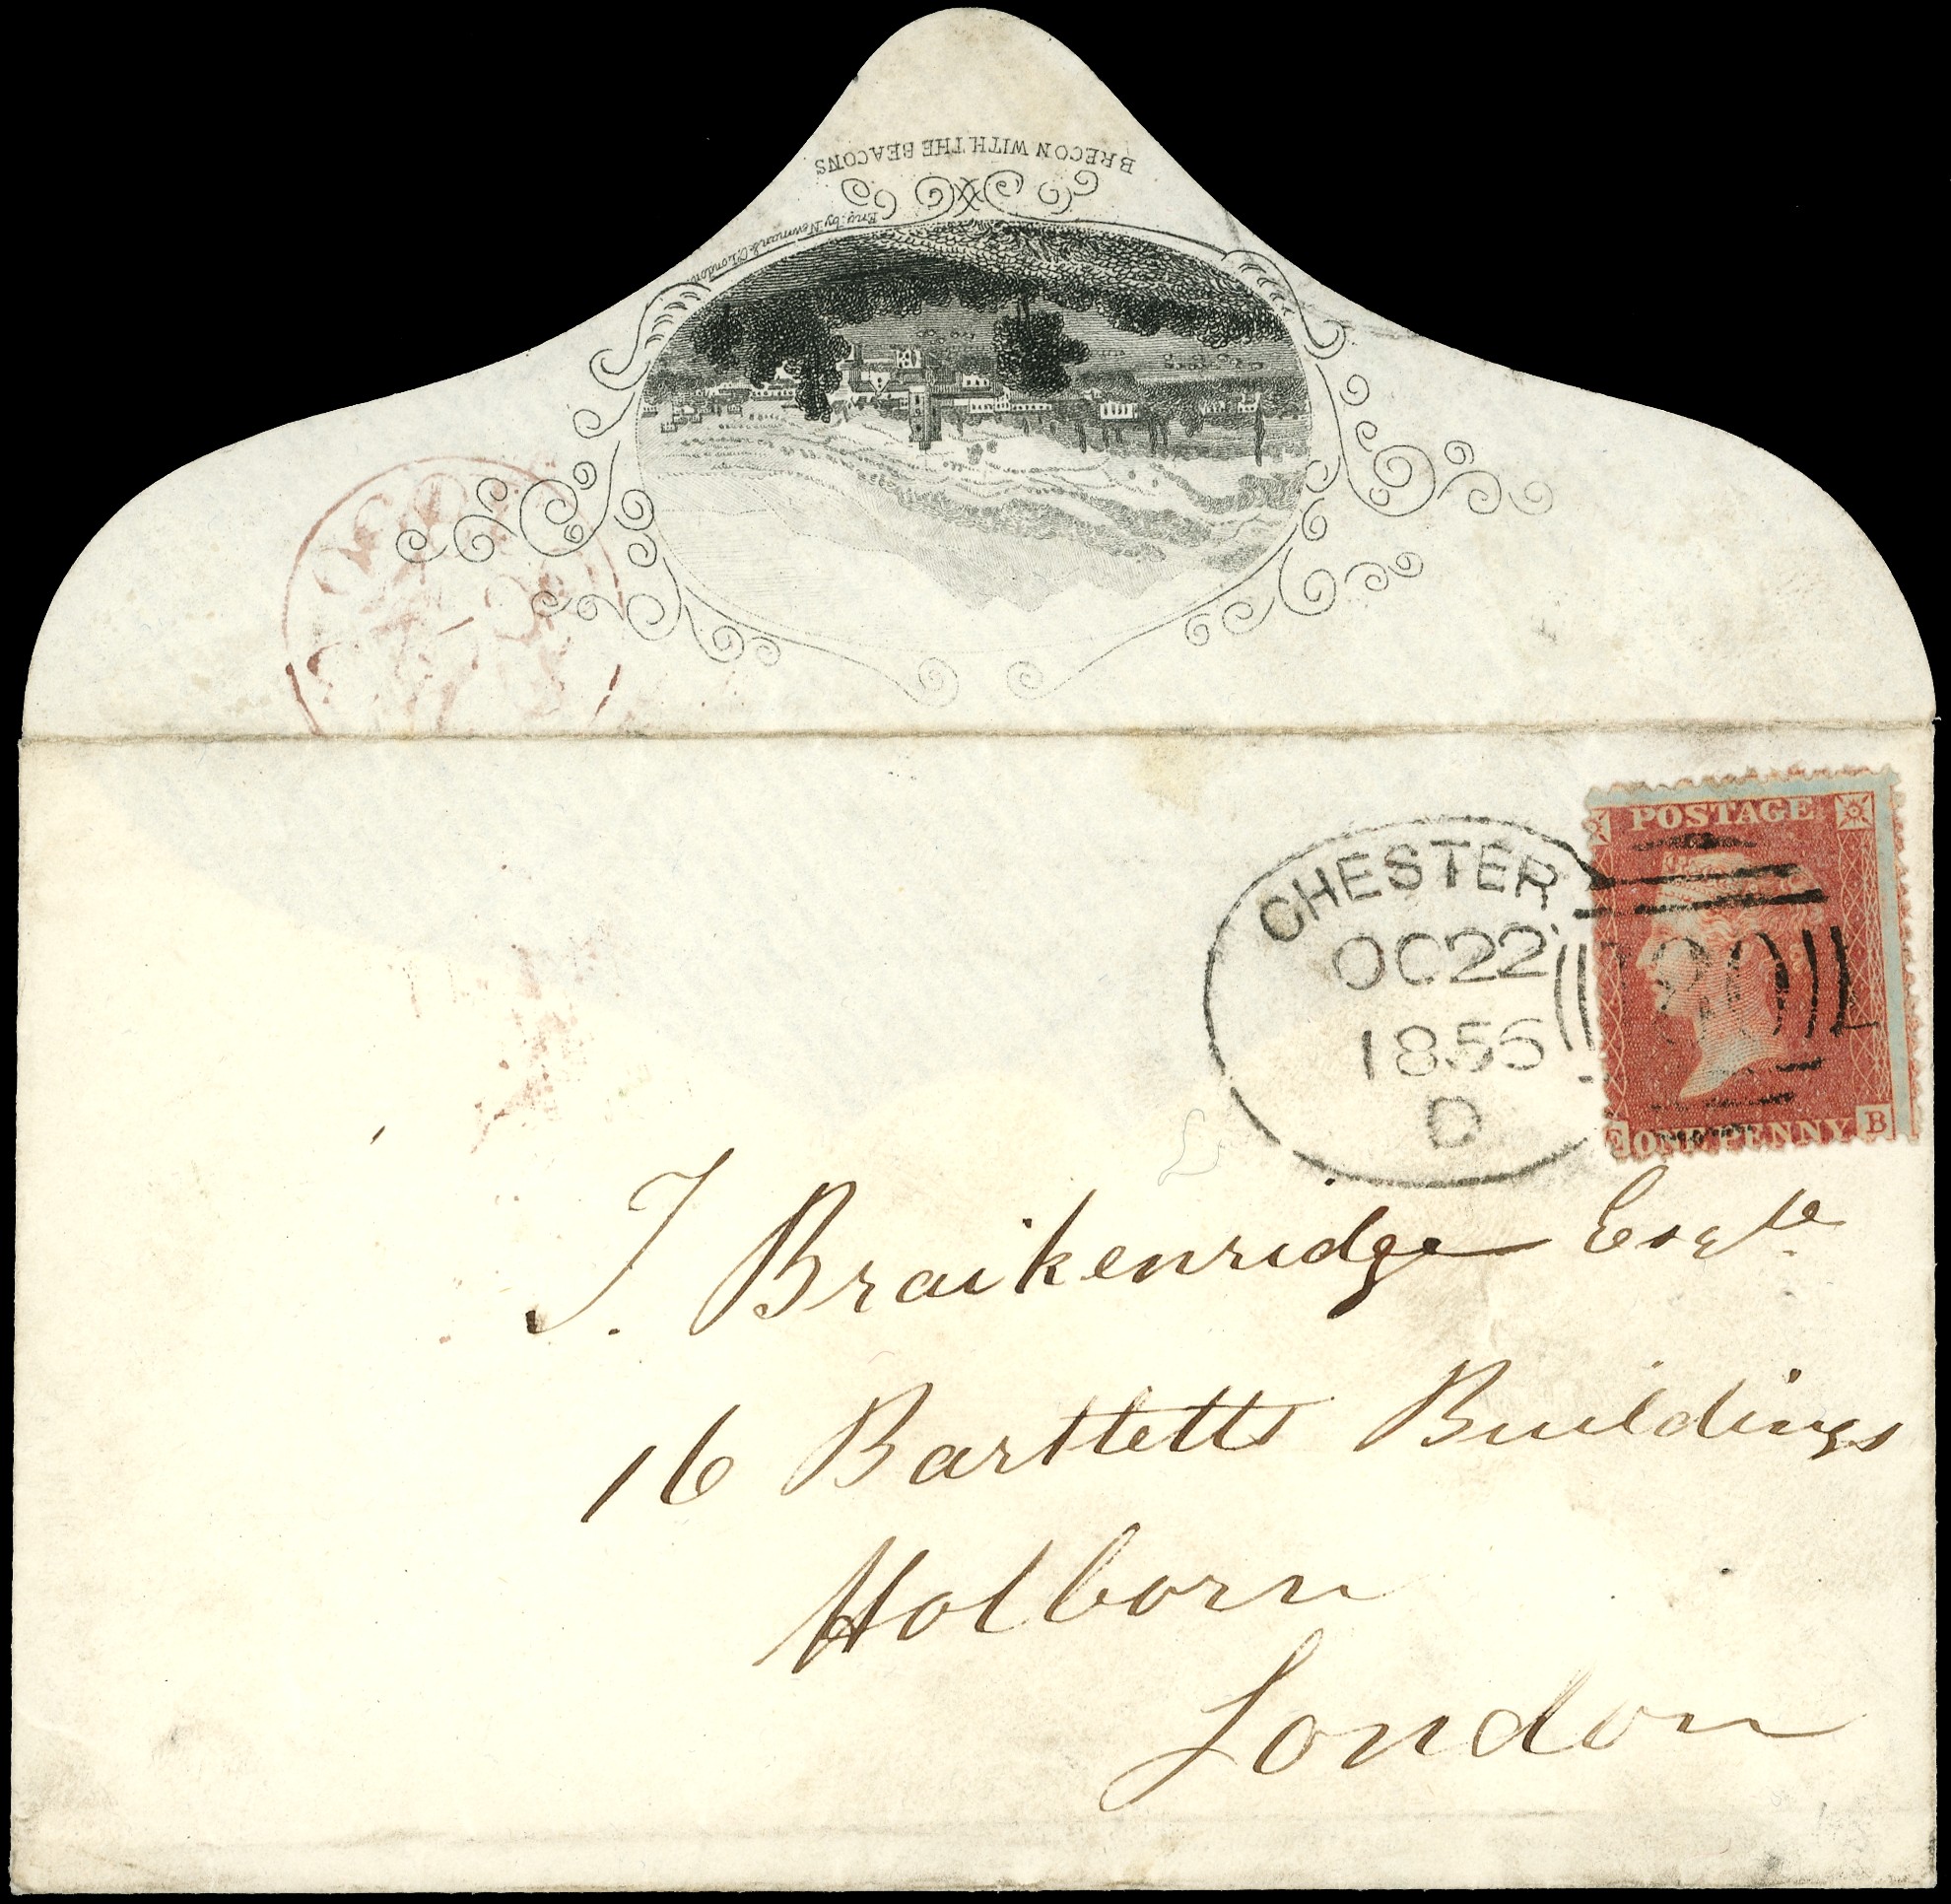 BRECON WITH THE BEACONS
Eng. by Newman & Co. London
CHESTER
OC22
1856
D
POSTAGE
ONE PENNY B
J. Braikenridge Esqre
16 Bartletts Buildings
Holborn
London